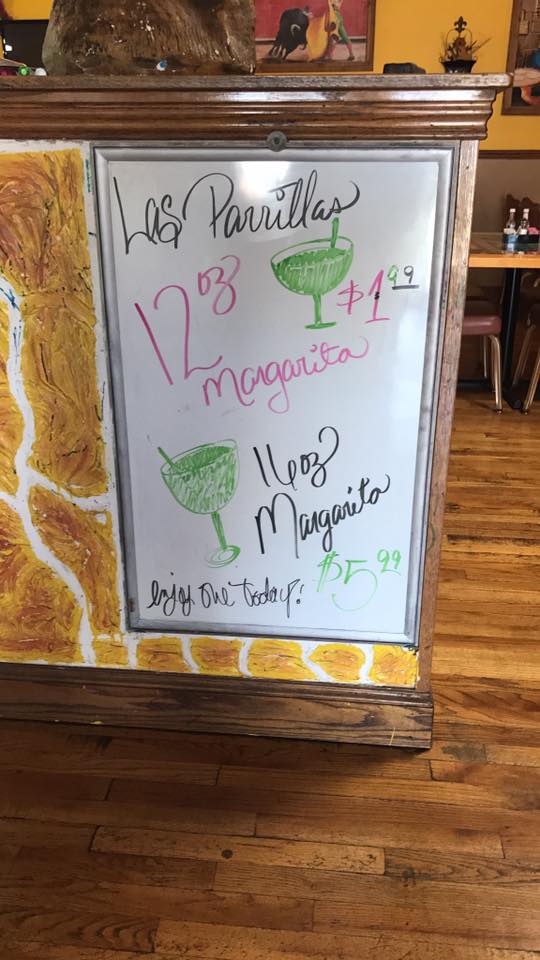 Las Parrillas
12 oz
$1.99
Margarita
16oz
Margarita
$5.99
enjoy one today!